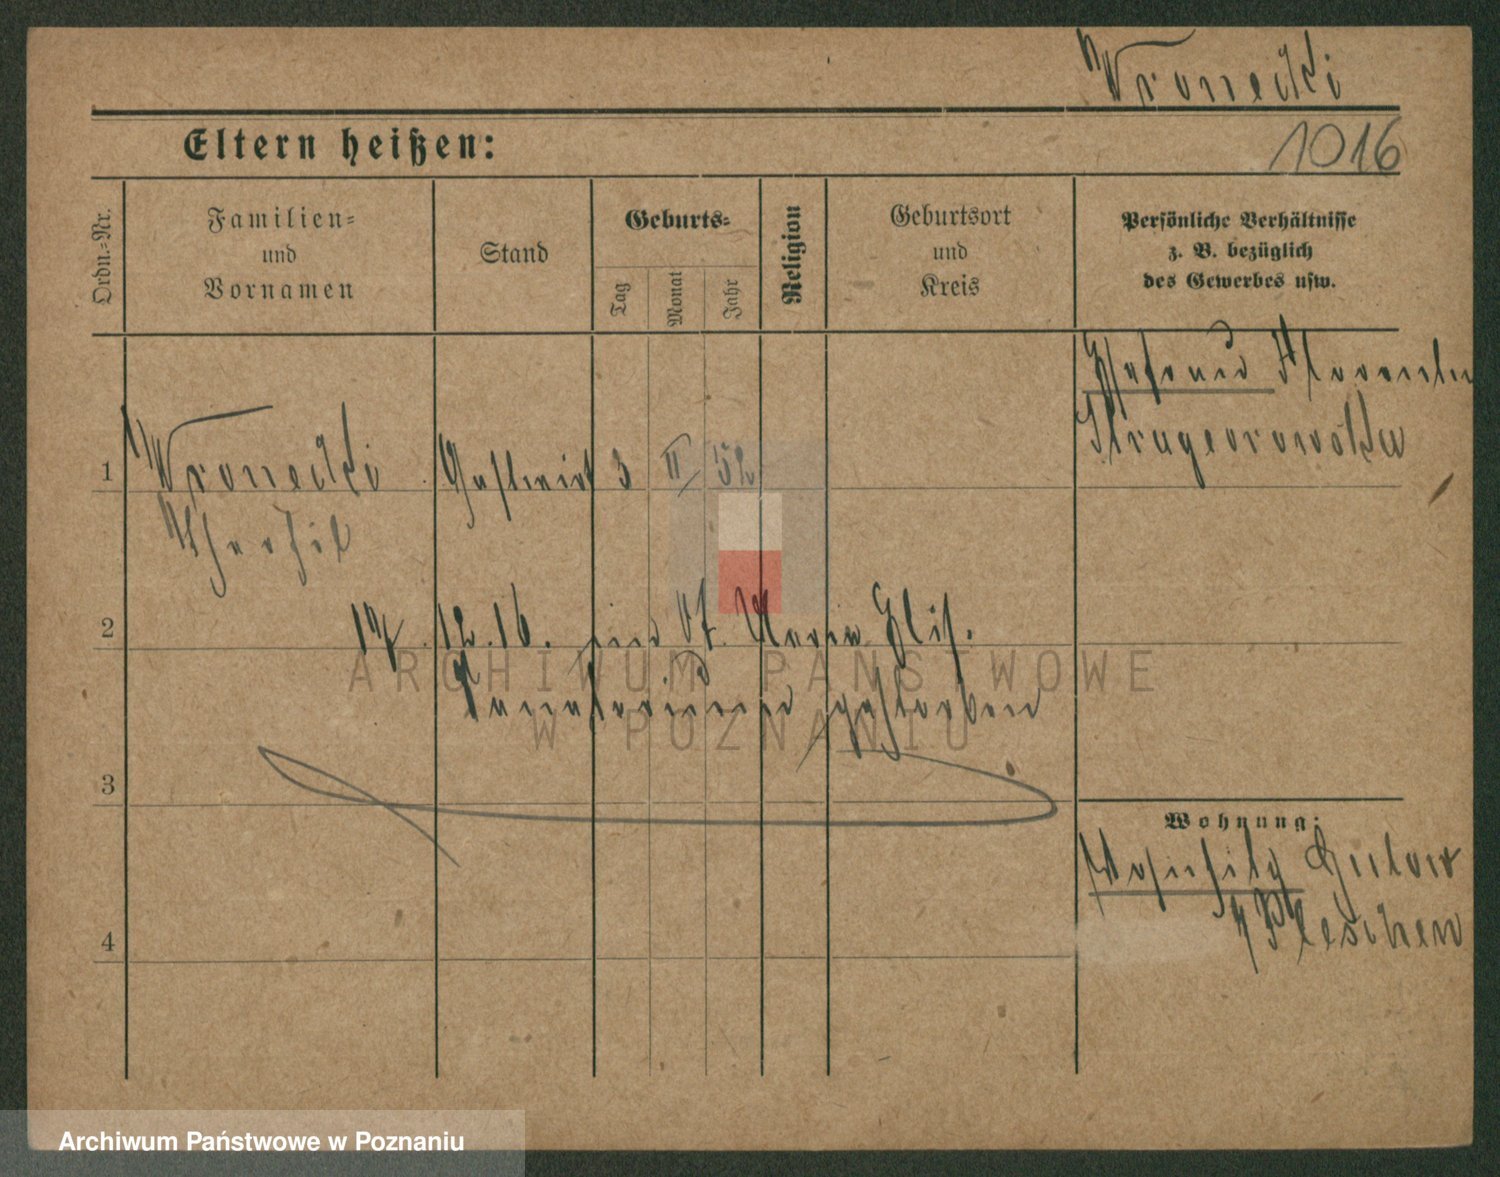 Wronecki
1016
Eltern heißen:
Ordn.=Nr.
Familien=
und
Vornamen
Stand
Geburts=
Tag
Monat
Jahr
Religion
Geburtsort
und
Kreis
Persönliche Verhältnisse
z. B. bezüglich
des Gewerbes usw.
Ehefrau
1 Wronecki Gastwirt 3 II 52
Theofil
2 12.16. im St. Maria Elis.
Sanatorium gestorben
ARCHIWUM PAŃSTWOWE
W POZNANIU
3
Wohnung:
Gutow
Pleschen
4
Archiwum Państwowe w Poznaniu